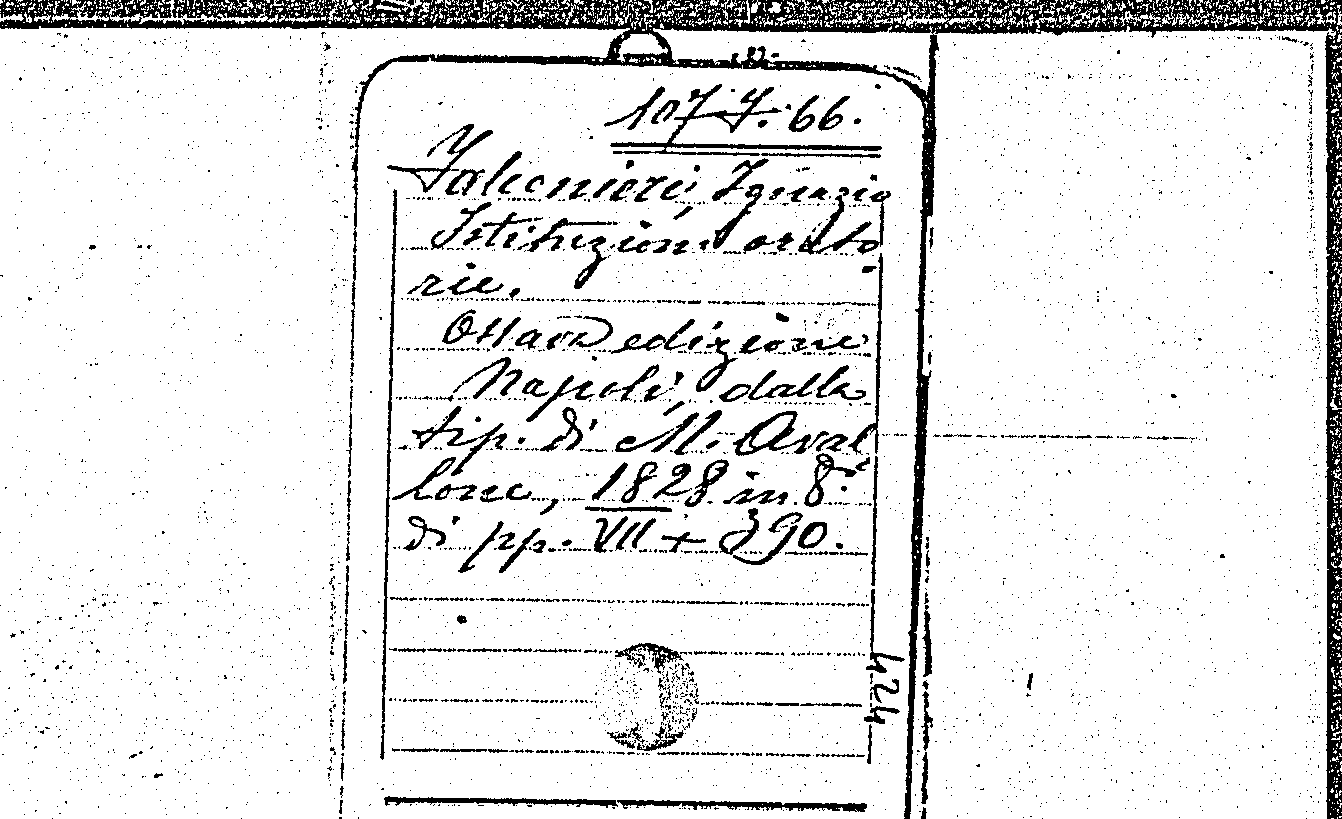 107. F. 66.
Falconieri, Ignazio
Istituzioni orato
rie.
Ottava edizione
Napoli, dalla
tip. di M. Aval
lone, 1828 in 8.°
di pp. VII + 390.
424